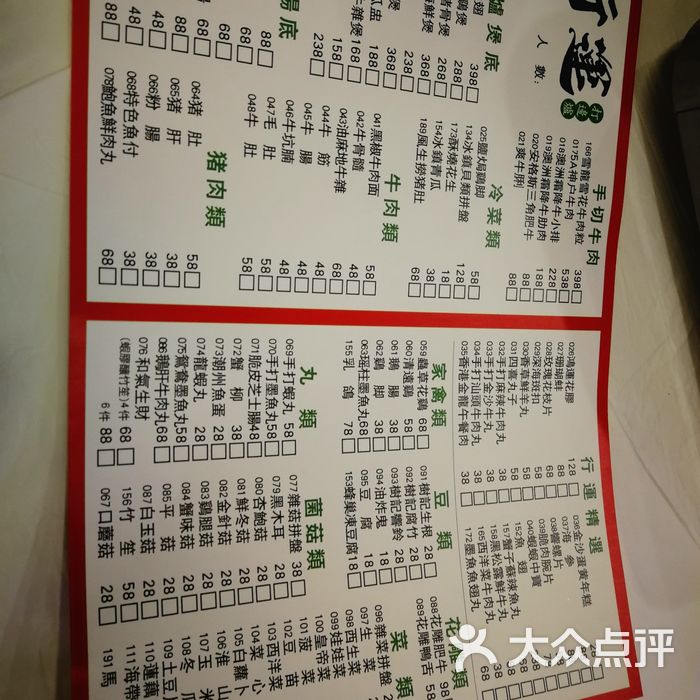 行運
打邊爐
人數:
手切牛肉
168雪龍雪花牛肉粒 398
0175A神户牛肉 538
018澳洲霜降牛小排 228
019澳洲霜降牛肋肉 188
020安格斯三角肥牛 88
021爽牛脷 88
爐煲底
398
288
268
368
268
368
冷菜類
025鹽焗鷄脚 58
134冰鎮貝類拼盤 128
173酥燒花生 18
154冰鎮青瓜 38
189風生撈猪肚 68
湯底
88
68
88
238
158
168
238
牛肉類
041黑椒牛肉面 58
042牛骨髓 68
043油麻地牛雜 48
044牛筋 48
045牛腩 48
046牛坑腩 48
047毛肚 58
048牛肚 58
猪肉類
064猪肚 58
065猪肝 38
066粉腸 38
068特色魚付 38
078鮑魚鮮肉丸 68
行運精選
026鴻運花膠 128
027珊瑚鮮 88
028玫瑰花枝片 88
029深海斑扣 68
030香茜鮮羊丸 58
031四寶丸子 58
032手打麻辣牛肉丸 38
033手打金沙牛丸 38
034手打汕頭牛肉丸 38
035香港金龍午餐肉 38
036金沙蛋黄年糕
037海參
038響螺片
039脆肉脘片
040蝦蝦中寶
152魚翅
157蟹子蘇辣魚丸
158黑松露鮮牛丸
165西洋菜牛肉丸
172墨魚魚翅丸
家禽類
059蟲草花鷄 68
060清遠鷄 58
061鵝腸 38
062鷄脚 38
063瑶柱墨魚丸 68
155乳鴿 78
丸類
069手打蝦丸 58
070手打墨魚丸 58
071脆皮芝士腸 48
072蟹柳 38
073潮州魚蛋 28
074龍蝦丸 28
075鴛鴦墨魚丸 58
086鵝肝牛肉丸 88
076和氣生財
(蝦膠釀竹笙) 4件 68
6件 88
豆類
091樹記生根 28
092樹記腐竹 28
093樹記響鈴 28
094油炸鬼 28
095豆腐 18
153蜂巢凍豆腐 18
菌菇類
077雜菇拼盤 38
079黑木耳 28
080杏鮑菇 28
081鮮冬菇 28
082金針菇 28
083鷄腿菇 28
084蟹味菇 28
085平菇 28
087白玉菇 28
156竹笙 58
067口蘑菇 28
花雕類
088花雕肥牛 98
089花雕鴨舌 68
菜類
096雜菜拼盤
097生菜
098西生菜
099娃娃菜
100皇帝菜
101菠菜
102豆苗
103西洋菜
104菜心
105白蘿卜
106淮山
107玉米
108冬瓜
109土豆
110蓮藕
111海帶
191馬
大众点评